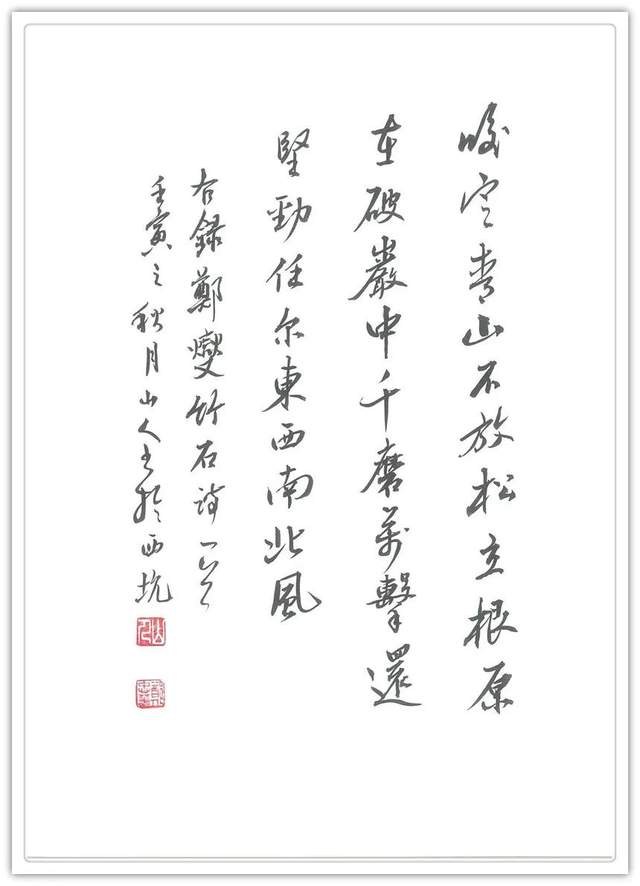 咬定青山不放松立根原
在破巖中千磨萬擊還
堅勁任尔東西南北風
右録鄭燮竹石詩一首
壬寅之秋月山人書於西坑